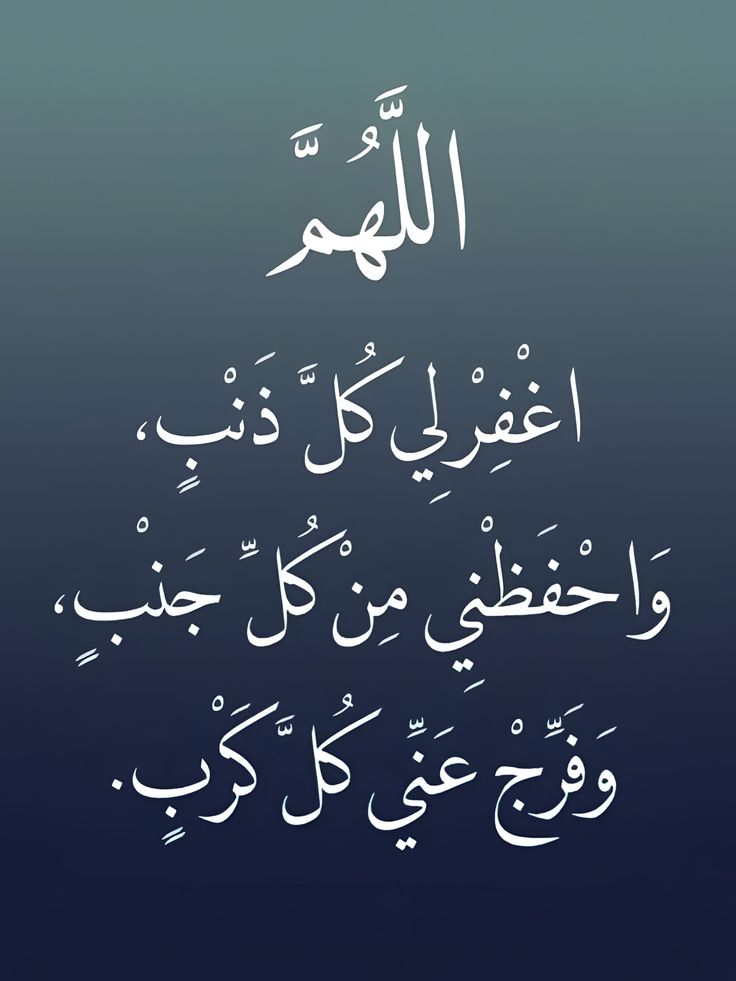 اللَّهُمَّ
اغْفِرْ لِي كُلَّ ذَنْبٍ،
وَاحْفَظْنِي مِنْ كُلِّ جَنْبٍ،
وَفَرِّجْ عَنِّي كُلَّ كَرْبٍ.